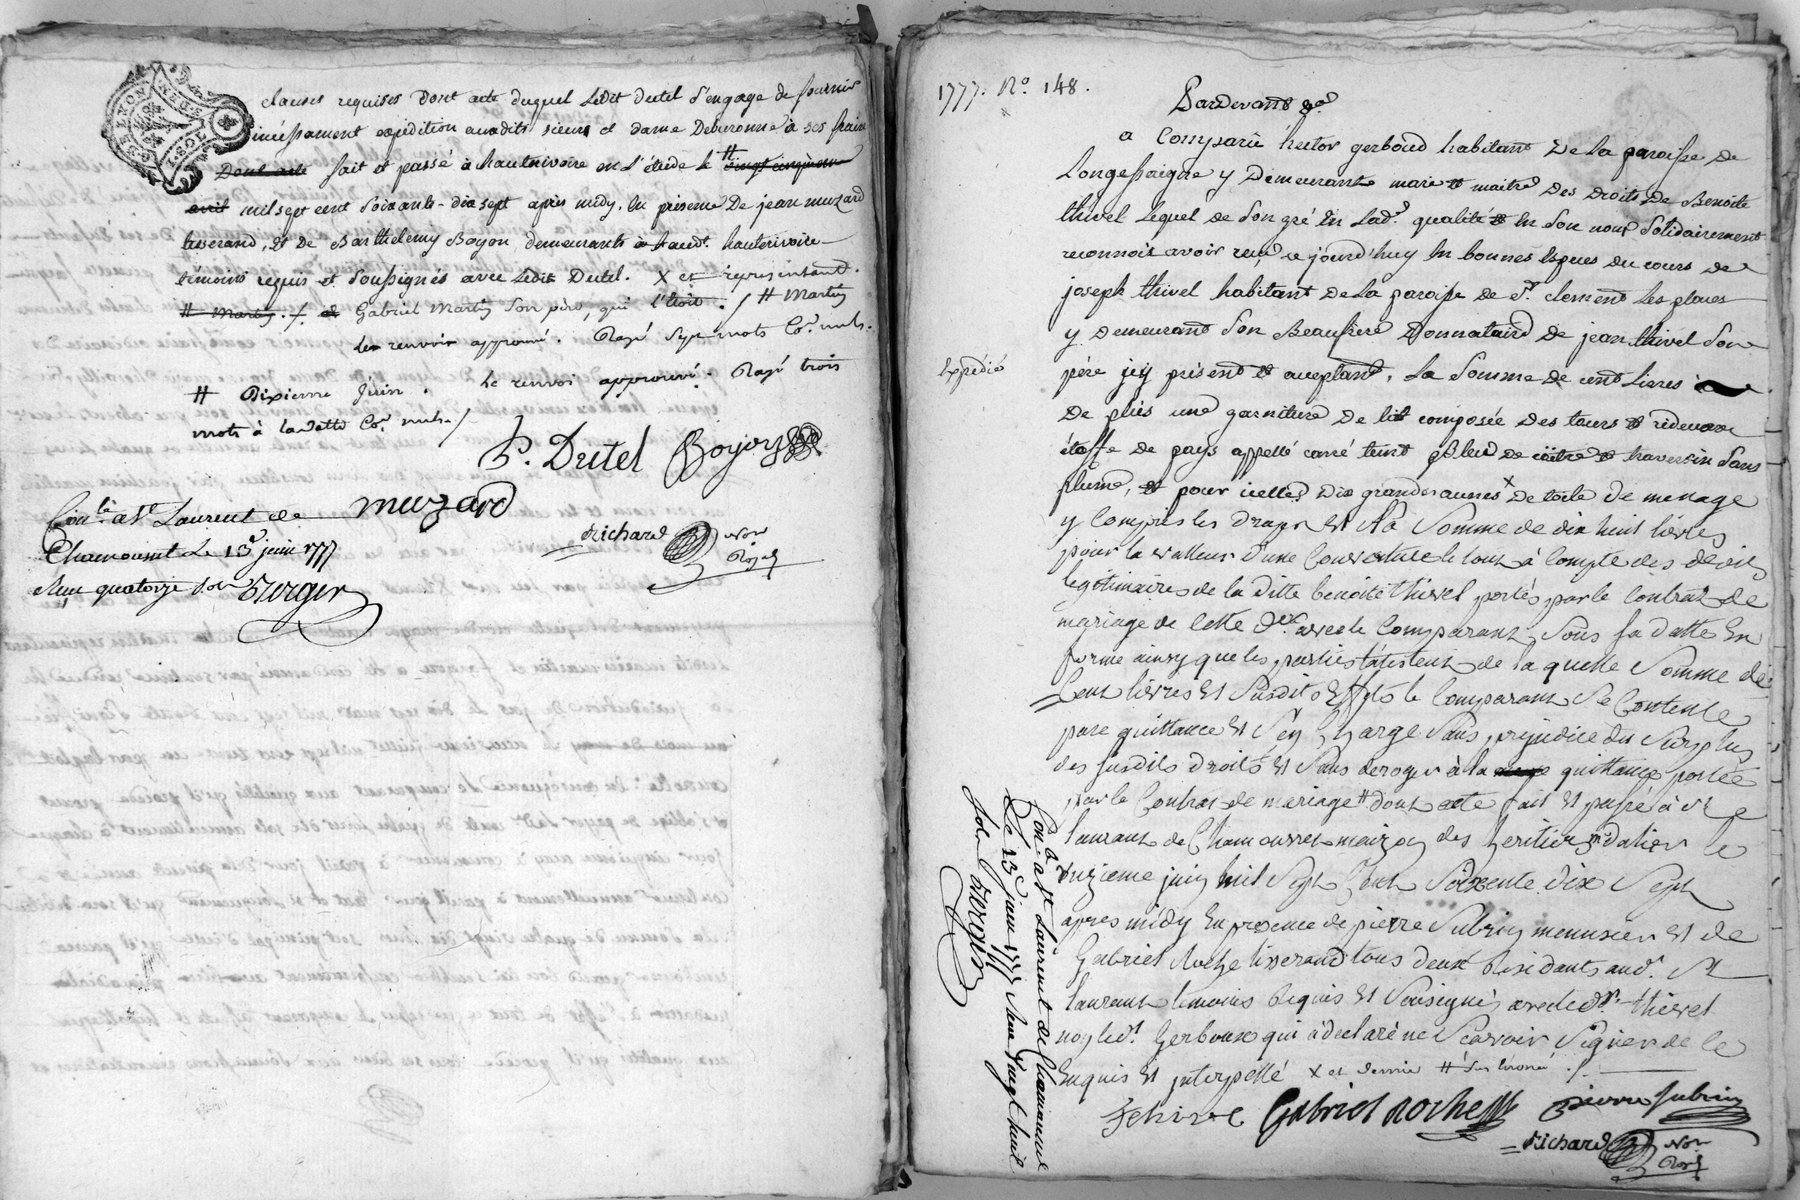 clauses requises dont acte duquel Ledit Dutel s'engage de fournir
incessament expedition auxdits sieur et dame Deburonne à ses frais
Dont acte fait et passé à hauterivoire en l'étude le # vingt cinquieme
avril mil sept cent soixante-dix sept après midy, en présence De jean muzard
tisserand, et De Barthelemy Boyon demeurants à laud. hauterivoire
témoins requis et soussignés avec Ledit Dutel. X et représentant
# Martin ./. et Gabriel Martin son père, qui l'étoit. / # Martin
les renvois approuvé. Rayé sept mots Co. nuls.
# Dixieme Juin. le renvoi approuvé. Rayé trois
mots à la datte Co. nuls ./
P. Dutel Boyon
muzard
Richard Nore Royal
Con.lé a St Laurent de
Chamousset Le 13 juin 1777
Reçu quatorze sols Berger
1777. No. 148.
Pardevant &a
a Comparu hector gerboud habitant De La paroisse De
Longessaigne y Demeurant mari et maitre Des Droits De Benoite
thivel Lequel de son gré en Lad. qualité et en son nom solidairement
reconnoit avoir reçu ce jourd'huy en bonnes espèces du cours de
joseph thivel habitant De La paroisse de St. clement Les places
y Demeurant son Beaufrere Donnataire De jean thivel son
Expedié
père icy présent et acceptant, La somme De cent Livres
De plus une garniture De lit composée Des tours et rideaux
étoffe De pays appellé carré teint bleu de traversin sans
plume, et pour icelles Dix grandes aunes X De toile De menage
y Compris les draps Et La Somme de dix huit livres
pour la valleur d'une Couverture le tout à Compte des droits
legitimaires de la ditte benoite thivel portés par le Contrat de
mariage de cette dre. avec le Comparant, Sous sa datte En
forme ainsy que les parties l'atestent de la quelle Somme de
Cent livres Et Susdits Effets le Comparant Se Contente
passe quittance Et S'en Charge Sans préjudice du Surplus
des susdits droits Et Sans deroger à la quittance portée
par le Contrat de mariage # dont acte fait Et passé à St
laurant de Chamousset maison des heritiers dalier le
douzieme juin mil Sept Cent Soixente dix Sept
apres midy En presence de pierre Subrin menusier Et de
Gabriel Roche tisserand tous deux Residants aud. St
laurant temoins Requis Et Sousignés avec led. thivel
non led. Gerboux qui à declaré ne Scavoir Signer de ce
Enquis Et interpellé X et demie # sus énoncé ./
J thivel Gabriel Roche pierre subrin
Richard Nore Royal
Con.lé a St Laurent de Chamousset
Le 13 juin 1777 Reçu Vingt huit
sols Berger